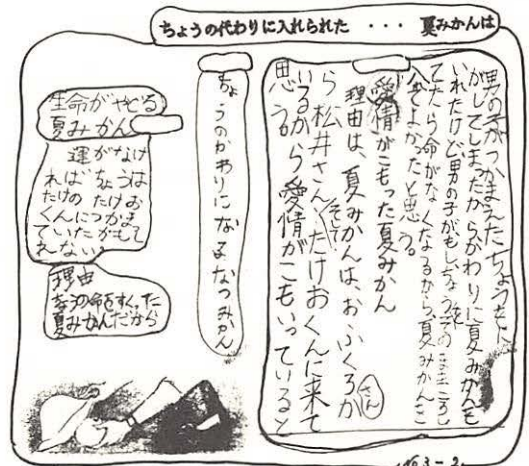 ちょうの代わりに入れられた ・・・ 夏みかんは
男の子がつかまえたちょうをに
がしてしまったからかわりに夏みかんを
いれたけど男の子がもしちょうをそのままころし
てたら命がなくなるから夏みかんを
入てよかったと思う。
愛情がこもった夏みかん
理由は、夏みかんは、おふくろか
ら松井さんそしてたけおくんに来て
いるから愛情がこもいっていると
思う。
さん
ちょうのかわりになるなつみかん
生命がやどる
夏みかん
運がなけ
ればちょうは
たけのたけお
くんにつかま
ていたかもて
えない。
理由
ちょうの命をすくった
夏みかんだから